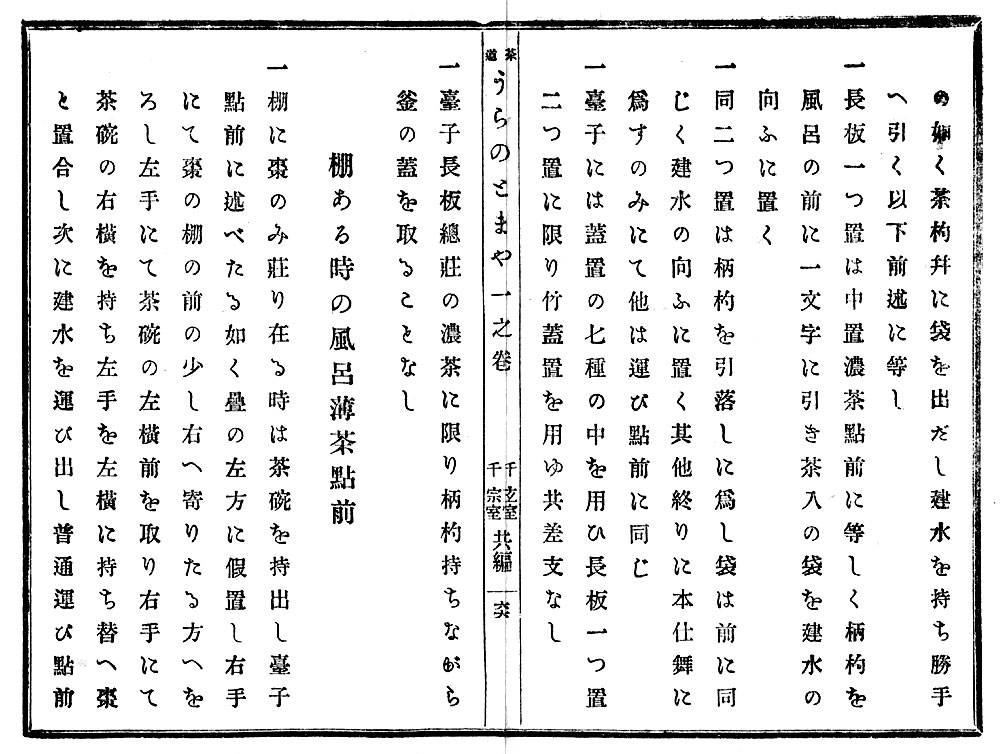 の如く茶杓幷に袋を出だし建水を持ち勝手
へ引く以下前述に等し
一長板一つ置は中置濃茶點前に等しく柄杓を
風呂の前に一文字に引き茶入の袋を建水の
向ふに置く
一同二つ置は柄杓を引落しに爲し袋は前に同
じく建水の向ふに置く其他終りに本仕舞に
爲すのみにて他は運び點前に同じ
一臺子には蓋置の七種の中を用ひ長板一つ置
二つ置に限り竹蓋置を用ゆ共差支なし
茶道 うらのとまや一之卷 千玄室 千宗室 共編 六六
一臺子長板總莊の濃茶に限り柄杓持ちながら
釜の蓋を取ることなし
棚ある時の風呂薄茶點前
一棚に棗のみ莊り在る時は茶碗を持出し臺子
點前に述べたる如く疊の左方に假置し右手
にて棗の棚の前の少し右へ寄りたる方へを
ろし左手にて茶碗の左橫前を取り右手にて
茶碗の右橫を持ち左手を左橫に持ち替へ棗
と置合し次に建水を運び出し普通運び點前